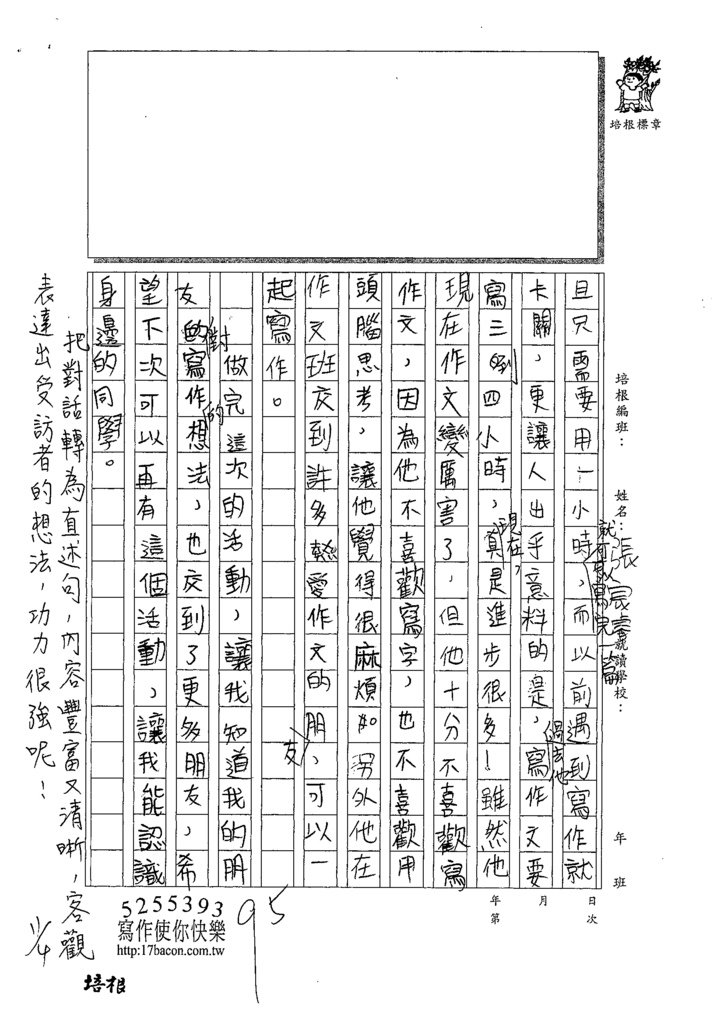 培根標章
培根編班：
姓名：張宸睿
就讀學校：
年 班
且只需要用一小時，而以前遇到寫作就
就可以寫完一篇
卡關，更讓人出乎意料的是，寫作文要
過去他
寫三到四小時，真是進步很多！雖然他
現在，
現在作文變厲害了，但他十分不喜歡寫
作文，因為他不喜歡寫字，也不喜歡用
頭腦思考，讓他覺得很麻煩。另外他在
作文班交到許多熱愛作文的朋，可以一
友
起寫作。
做完這次的活動，讓我知道我的朋
友的寫作想法，也交到了更多朋友，希
對
的
望下次可以再有這個活動，讓我能認識
身邊的同學。
把對話轉為直述句，內容豐富又清晰，客觀
表達出受訪者的想法，功力很強呢！
11/4
95
年 月 日
第 次
5255393
寫作使你快樂
http:17bacon.com.tw
培根